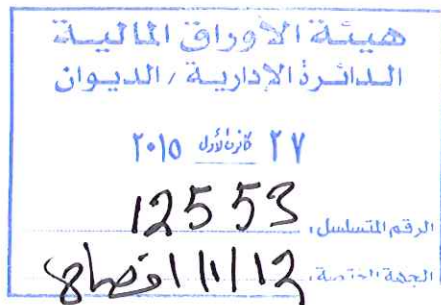 هيئة الأوراق المالية
الدائرة الإدارية / الديوان
٢٧ كانون الأول ٢٠١٥
الرقم المتسلسل: 12553
الجهة المختصة: افصاح